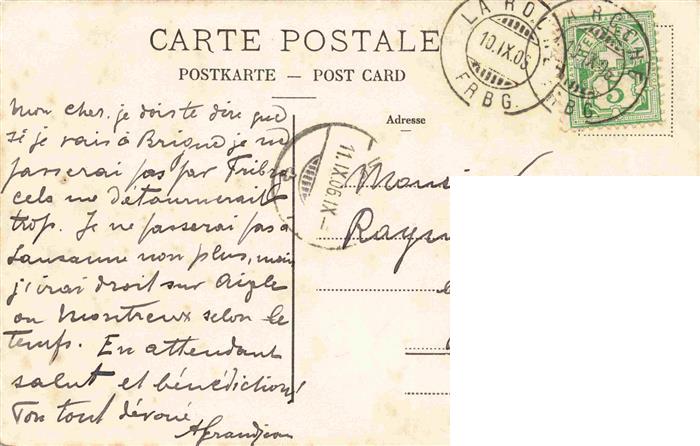 CARTE POSTALE
POSTKARTE — POST CARD
LA ROCHE
10.IX.06
FRBG.
5
Adresse
11.IX.06 IX—
Mon cher. je dois te dire que
si je vais à Brigue je ne
passerai pas par Fribg
cela me détournerait
trop. Je ne passerai pas à
Lausanne non plus, mais
j'irai droit sur Aigle
ou Montreux selon le
temps. En attendant
salut et bénédiction!
Ton tout dévoué
AGrandjean
Monsi
Raym